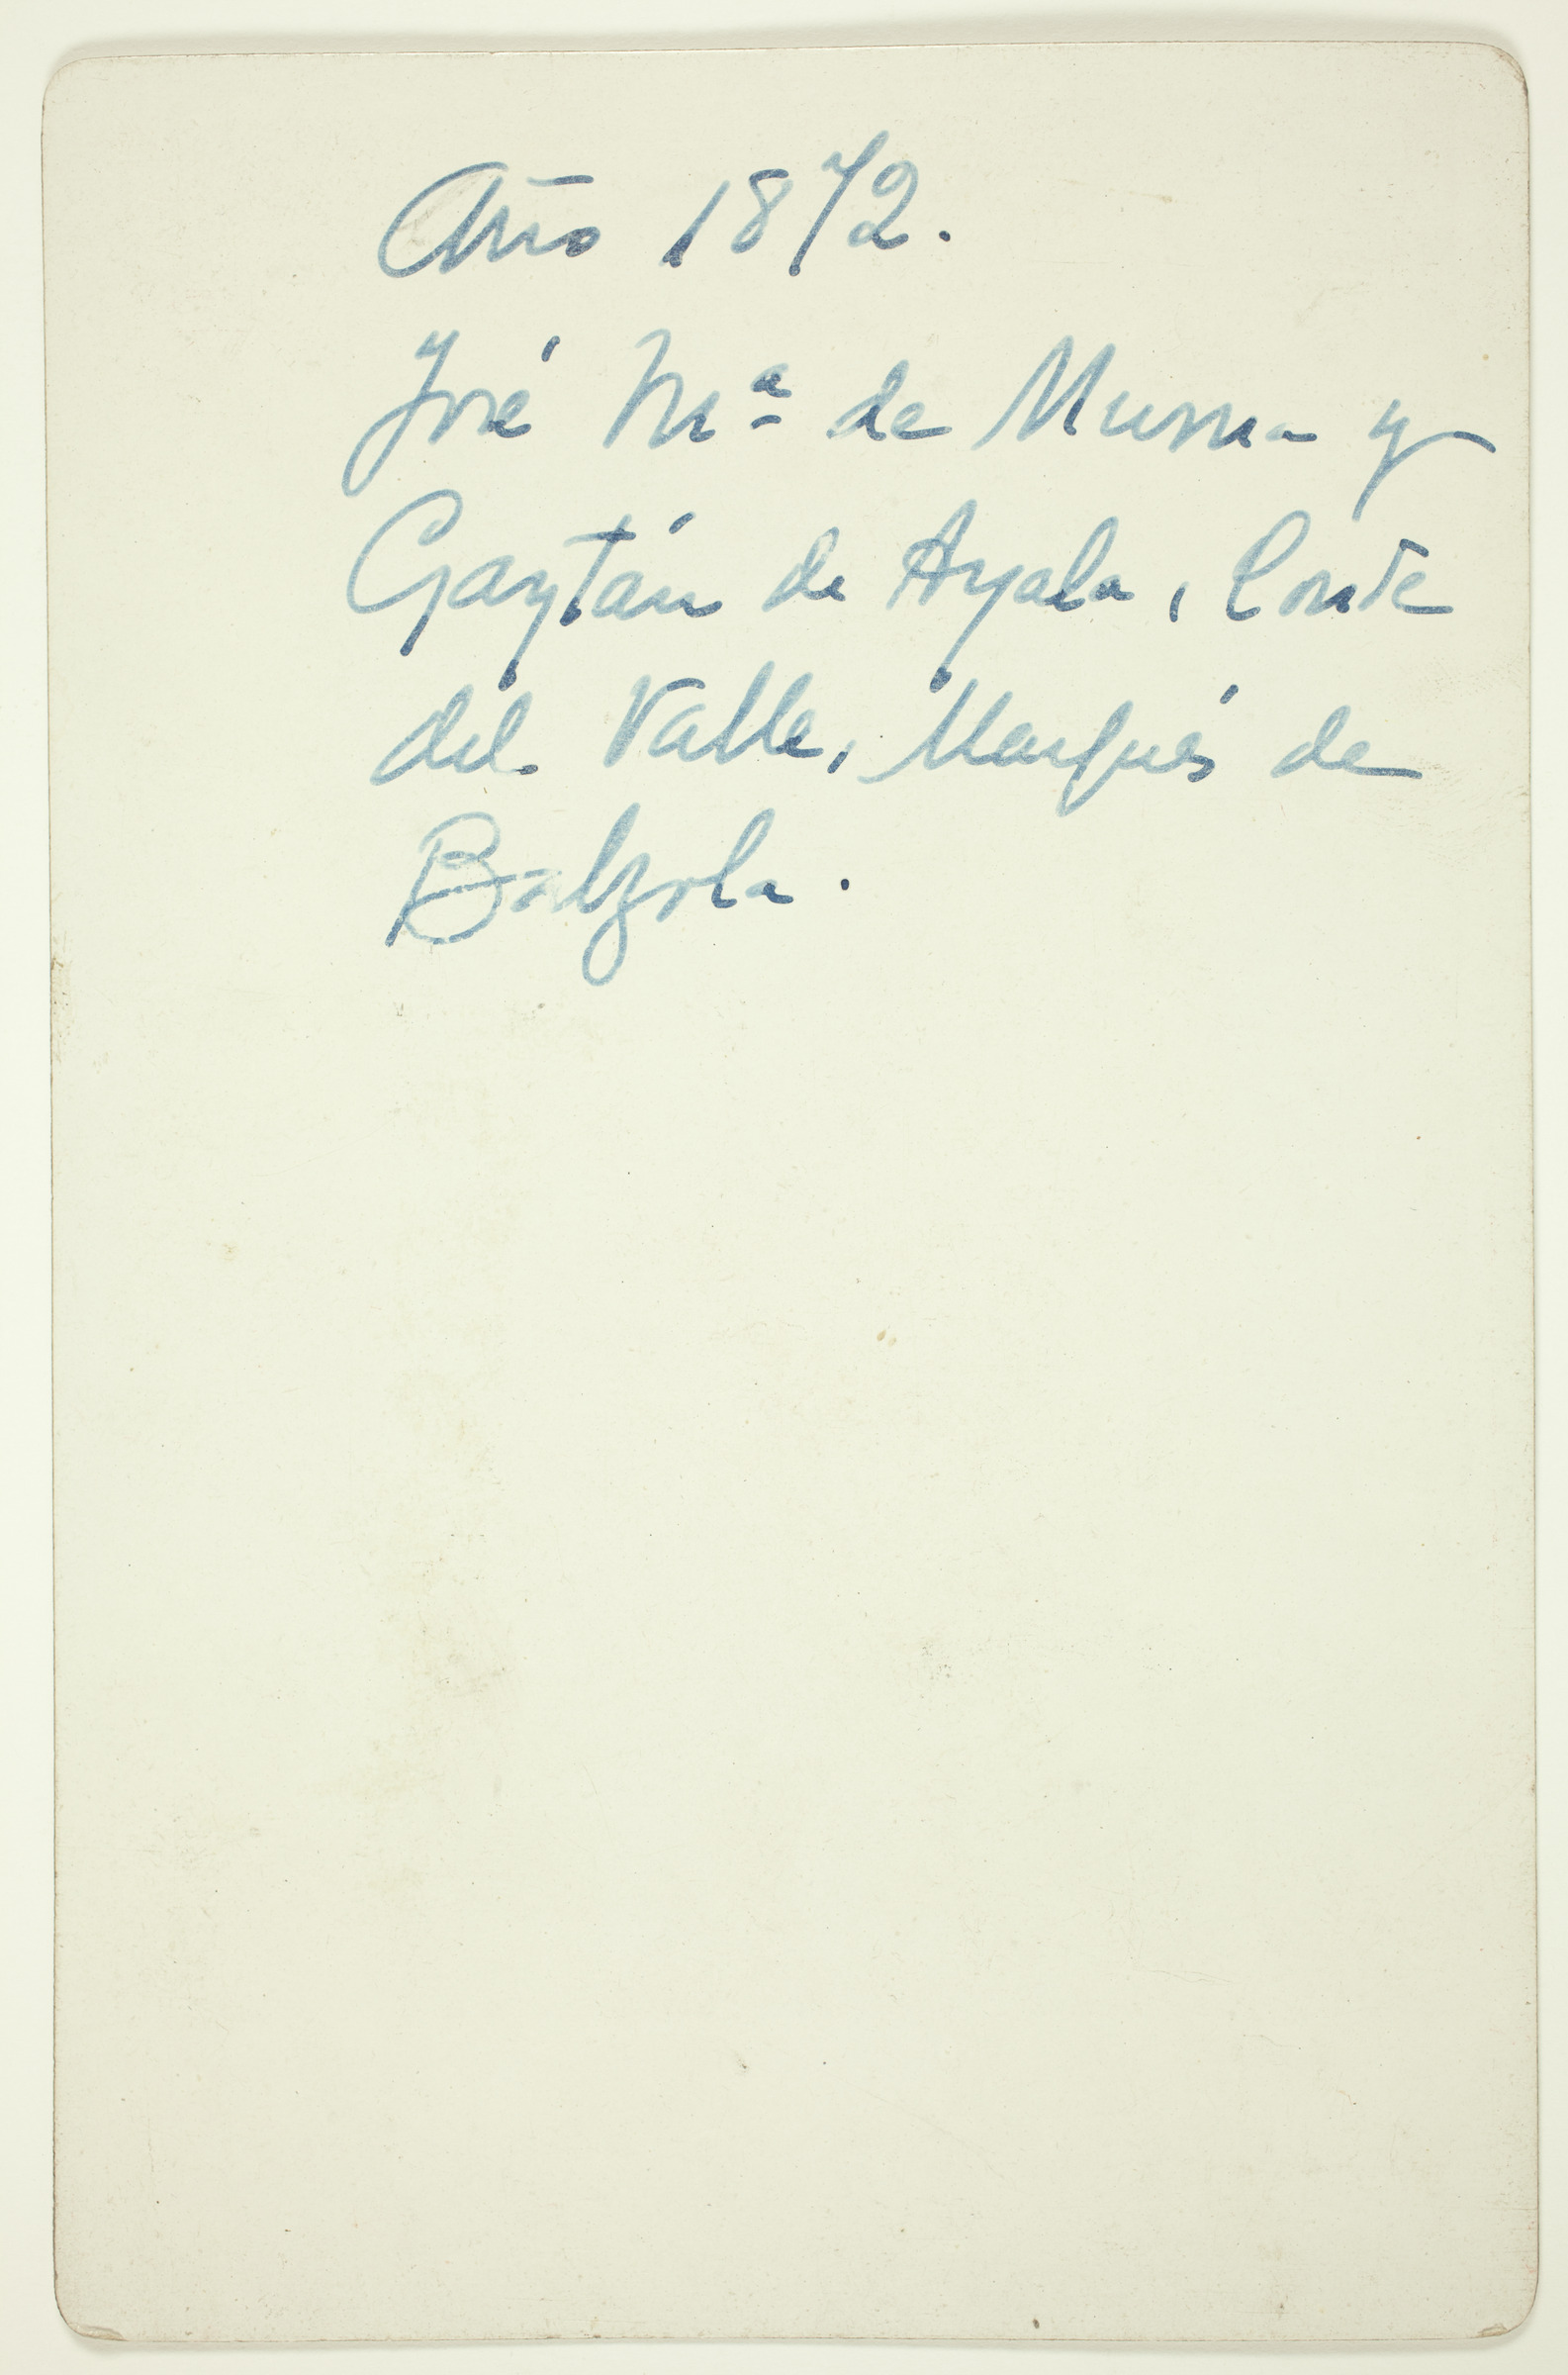 Año 1872.
José Mª de Murua y
Gaytán de Ayala, Conde
del Valle, Marqués de
Balzola.